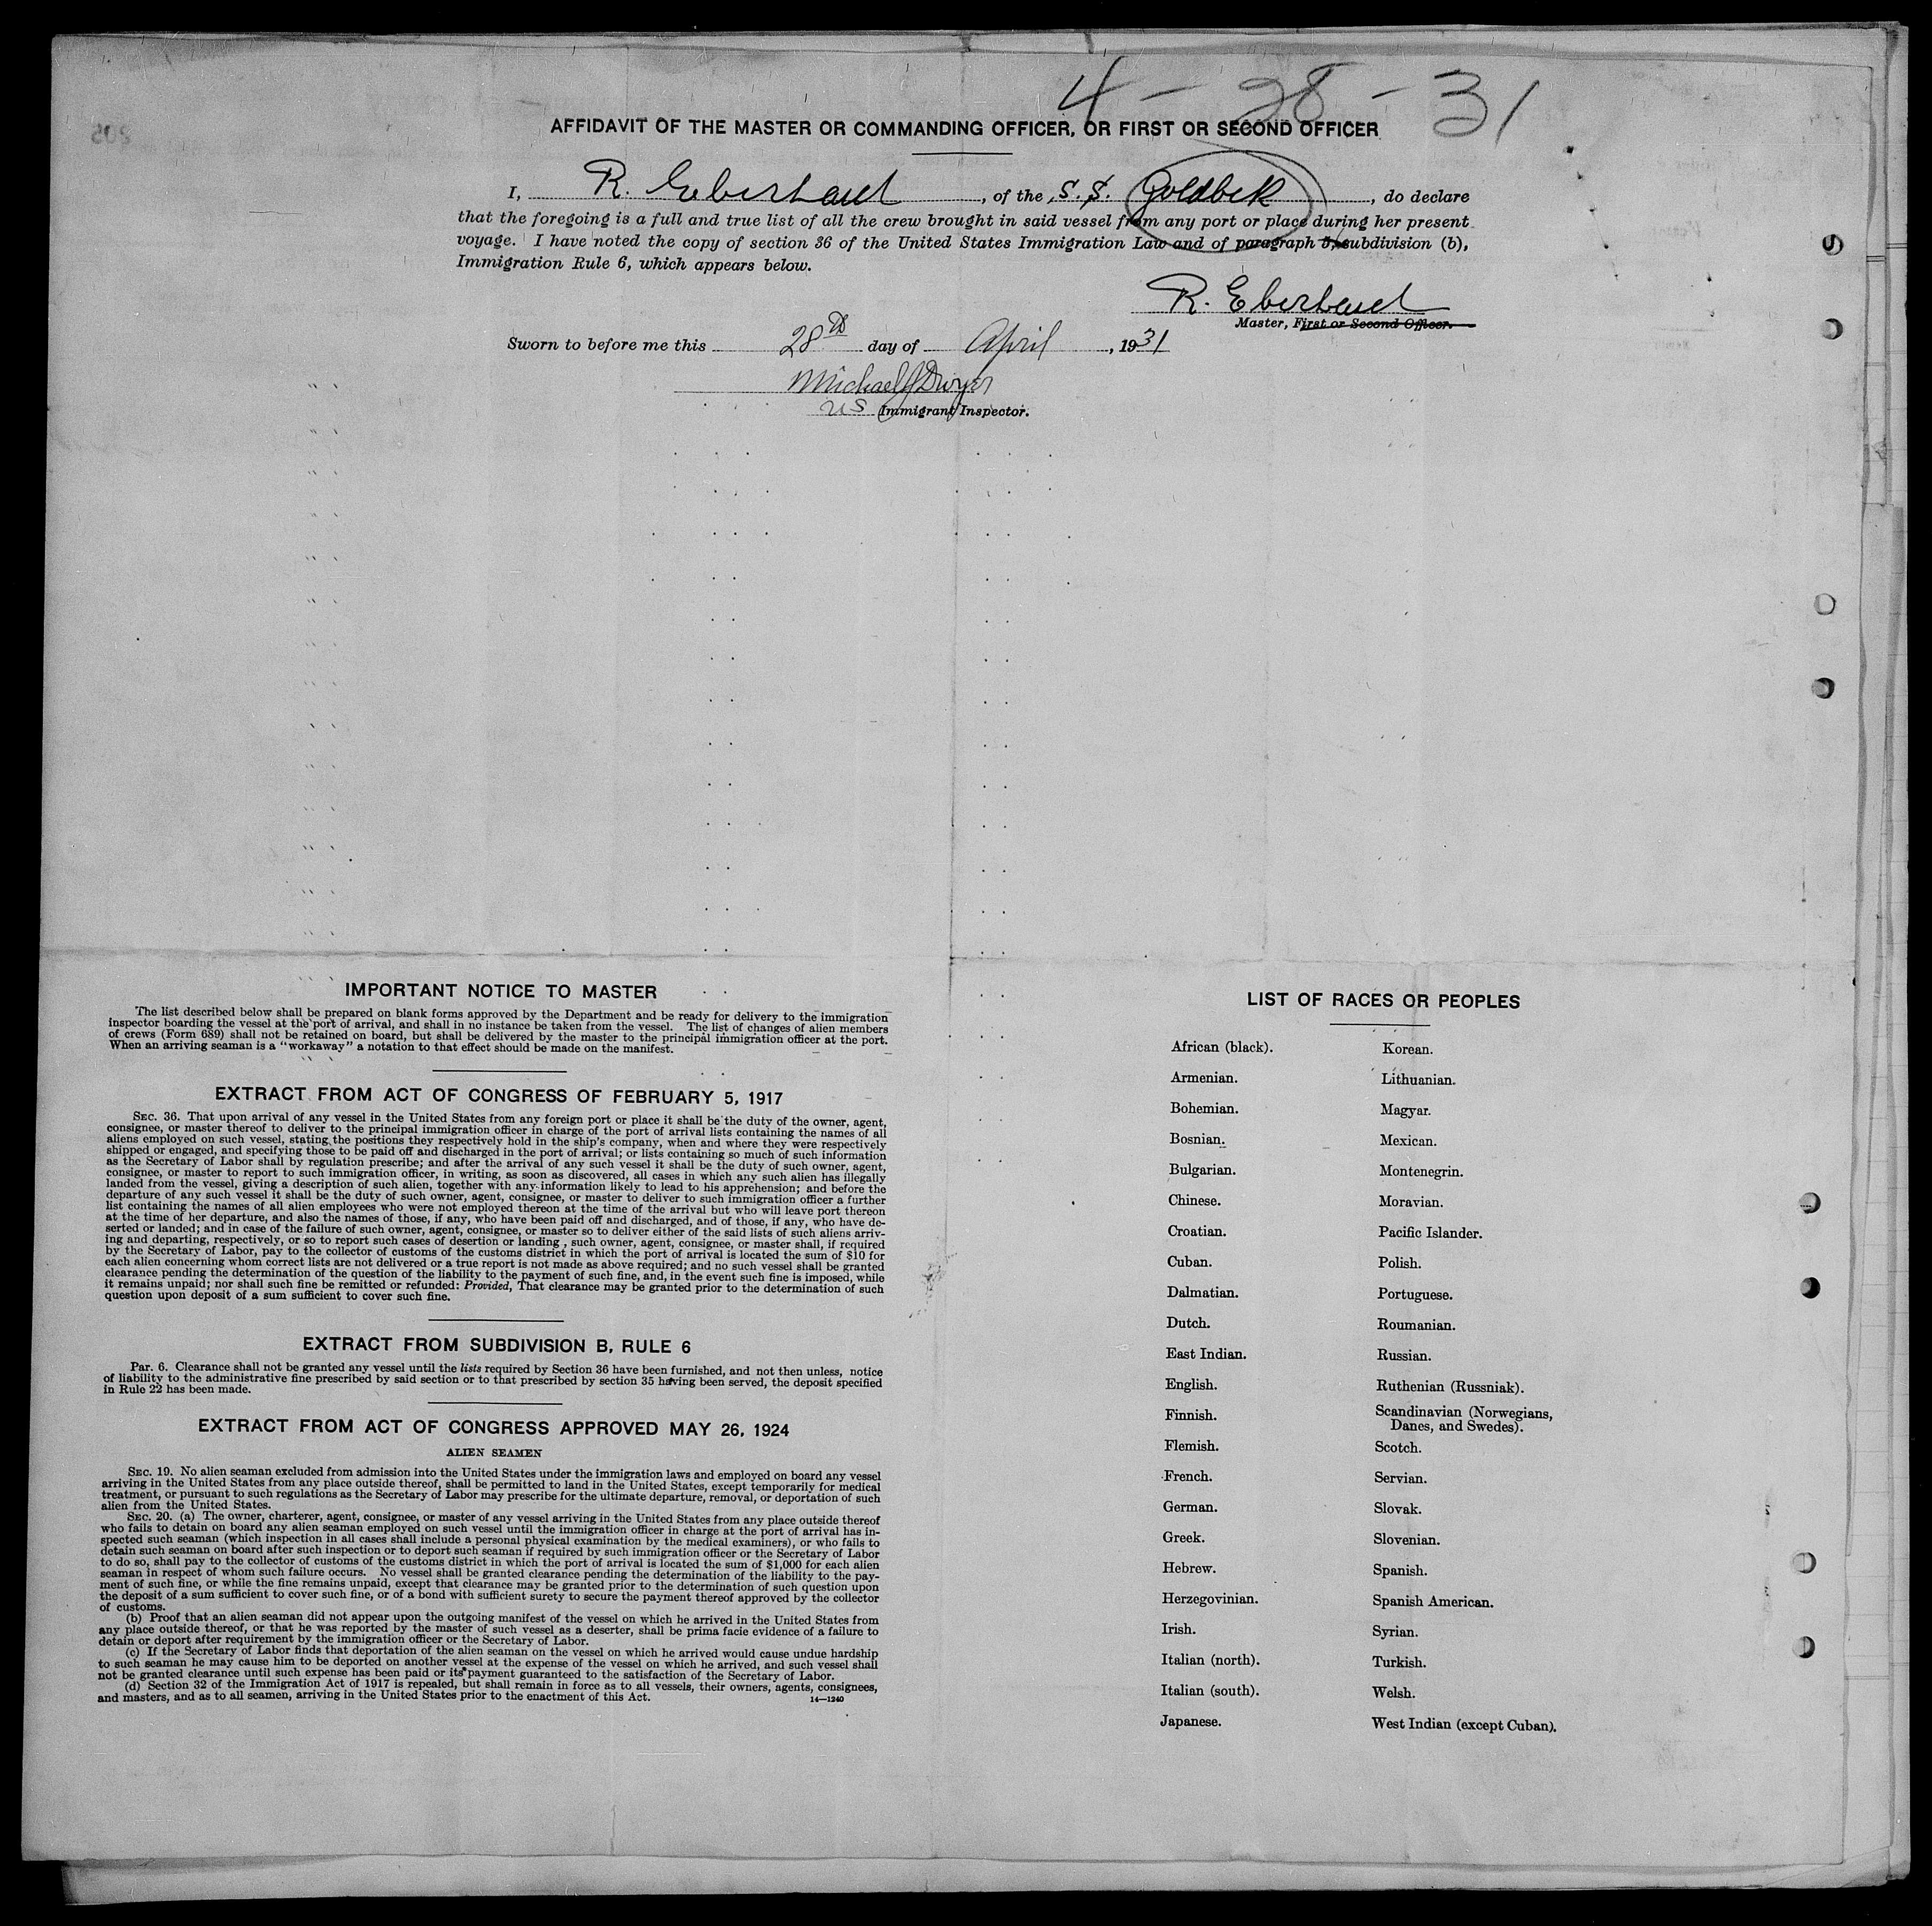 4 - 28 - 31
AFFIDAVIT OF THE MASTER OR COMMANDING OFFICER, OR FIRST OR SECOND OFFICER
I, R. Eberhard, of the S. S. Goldbek, do declare
that the foregoing is a full and true list of all the crew brought in said vessel from any port or place during her present
voyage. I have noted the copy of section 36 of the United States Immigration Law and of paragraph 5, subdivision (b),
Immigration Rule 6, which appears below.
R. Eberhard
Master, First or Second Officer.
Sworn to before me this 28th day of April, 1931
Michael J Dwyer
US Immigrant Inspector.
IMPORTANT NOTICE TO MASTER
The list described below shall be prepared on blank forms approved by the Department and be ready for delivery to the immigration
inspector boarding the vessel at the port of arrival, and shall in no instance be taken from the vessel. The list of changes of alien members
of crews (Form 689) shall not be retained on board, but shall be delivered by the master to the principal immigration officer at the port.
When an arriving seaman is a "workaway" a notation to that effect should be made on the manifest.
EXTRACT FROM ACT OF CONGRESS OF FEBRUARY 5, 1917
SEC. 36. That upon arrival of any vessel in the United States from any foreign port or place it shall be the duty of the owner, agent,
consignee, or master thereof to deliver to the principal immigration officer in charge of the port of arrival lists containing the names of all
aliens employed on such vessel, stating the positions they respectively hold in the ship's company, when and where they were respectively
shipped or engaged, and specifying those to be paid off and discharged in the port of arrival; or lists containing so much of such information
as the Secretary of Labor shall by regulation prescribe; and after the arrival of any such vessel it shall be the duty of such owner, agent,
consignee, or master to report to such immigration officer, in writing, as soon as discovered, all cases in which any such alien has illegally
landed from the vessel, giving a description of such alien, together with any information likely to lead to his apprehension; and before the
departure of any such vessel it shall be the duty of such owner, agent, consignee, or master to deliver to such immigration officer a further
list containing the names of all alien employees who were not employed thereon at the time of the arrival but who will leave port thereon
at the time of her departure, and also the names of those, if any, who have been paid off and discharged, and of those, if any, who have de-
serted or landed; and in case of the failure of such owner, agent, consignee, or master so to deliver either of the said lists of such aliens arriv-
ing and departing, respectively, or so to report such cases of desertion or landing , such owner, agent, consignee, or master shall, if required
by the Secretary of Labor, pay to the collector of customs of the customs district in which the port of arrival is located the sum of $10 for
each alien concerning whom correct lists are not delivered or a true report is not made as above required; and no such vessel shall be granted
clearance pending the determination of the question of the liability to the payment of such fine, and, in the event such fine is imposed, while
it remains unpaid; nor shall such fine be remitted or refunded: Provided, That clearance may be granted prior to the determination of such
question upon deposit of a sum sufficient to cover such fine.
EXTRACT FROM SUBDIVISION B, RULE 6
Par. 6. Clearance shall not be granted any vessel until the lists required by Section 36 have been furnished, and not then unless, notice
of liability to the administrative fine prescribed by said section or to that prescribed by section 35 having been served, the deposit specified
in Rule 22 has been made.
EXTRACT FROM ACT OF CONGRESS APPROVED MAY 26, 1924
ALIEN SEAMEN
SEC. 19. No alien seaman excluded from admission into the United States under the immigration laws and employed on board any vessel
arriving in the United States from any place outside thereof, shall be permitted to land in the United States, except temporarily for medical
treatment, or pursuant to such regulations as the Secretary of Labor may prescribe for the ultimate departure, removal, or deportation of such
alien from the United States.
SEC. 20. (a) The owner, charterer, agent, consignee, or master of any vessel arriving in the United States from any place outside thereof
who fails to detain on board any alien seaman employed on such vessel until the immigration officer in charge at the port of arrival has in-
spected such seaman (which inspection in all cases shall include a personal physical examination by the medical examiners), or who fails to
detain such seaman on board after such inspection or to deport such seaman if required by such immigration officer or the Secretary of Labor
to do so, shall pay to the collector of customs of the customs district in which the port of arrival is located the sum of $1,000 for each alien
seaman in respect of whom such failure occurs. No vessel shall be granted clearance pending the determination of the liability to the pay-
ment of such fine, or while the fine remains unpaid, except that clearance may be granted prior to the determination of such question upon
the deposit of a sum sufficient to cover such fine, or of a bond with sufficient surety to secure the payment thereof approved by the collector
of customs.
(b) Proof that an alien seaman did not appear upon the outgoing manifest of the vessel on which he arrived in the United States from
any place outside thereof, or that he was reported by the master of such vessel as a deserter, shall be prima facie evidence of a failure to
detain or deport after requirement by the immigration officer or the Secretary of Labor.
(c) If the Secretary of Labor finds that deportation of the alien seaman on the vessel on which he arrived would cause undue hardship
to such seaman he may cause him to be deported on another vessel at the expense of the vessel on which he arrived, and such vessel shall
not be granted clearance until such expense has been paid or its payment guaranteed to the satisfaction of the Secretary of Labor.
(d) Section 32 of the Immigration Act of 1917 is repealed, but shall remain in force as to all vessels, their owners, agents, consignees,
and masters, and as to all seamen, arriving in the United States prior to the enactment of this Act.
14—1240
LIST OF RACES OR PEOPLES
African (black).
Armenian.
Bohemian.
Bosnian.
Bulgarian.
Chinese.
Croatian.
Cuban.
Dalmatian.
Dutch.
East Indian.
English.
Finnish.
Flemish.
French.
German.
Greek.
Hebrew.
Herzegovinian.
Irish.
Italian (north).
Italian (south).
Japanese.
Korean.
Lithuanian.
Magyar.
Mexican.
Montenegrin.
Moravian.
Pacific Islander.
Polish.
Portuguese.
Roumanian.
Russian.
Ruthenian (Russniak).
Scandinavian (Norwegians,
Danes, and Swedes).
Scotch.
Servian.
Slovak.
Slovenian.
Spanish.
Spanish American.
Syrian.
Turkish.
Welsh.
West Indian (except Cuban).